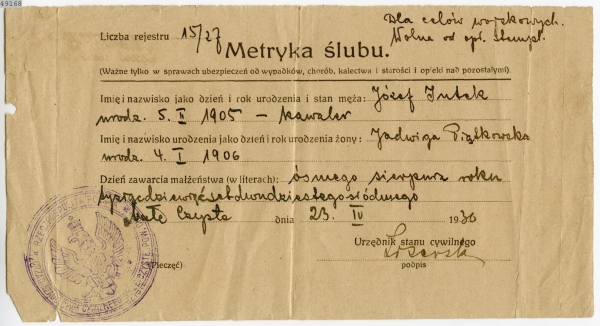 49168
Dla celów wojskowych.
Wolne od opł. stempl.
Liczba rejestru 15/27
Metryka ślubu.
(Ważne tylko w sprawach ubezpieczeń od wypadków, chorób, kalectwa i starości i opieki nad pozostałymi).
Imię i nazwisko jako dzień i rok urodzenia i stan męża: Józef Jutek
urodz. 5. II 1905 — kawaler
Imię i nazwisko urodzenia jako dzień i rok urodzenia żony: Jadwiga Piątkowska
urodz. 4. I 1906
Dzień zawarcia małżeństwa (w literach): ósmego sierpnia roku
tysiąc dziewięćset dwudziestego siódmego
Małe Czyste dnia 23. IV 1930
Urzędnik stanu cywilnego
(Pieczęć)
podpis